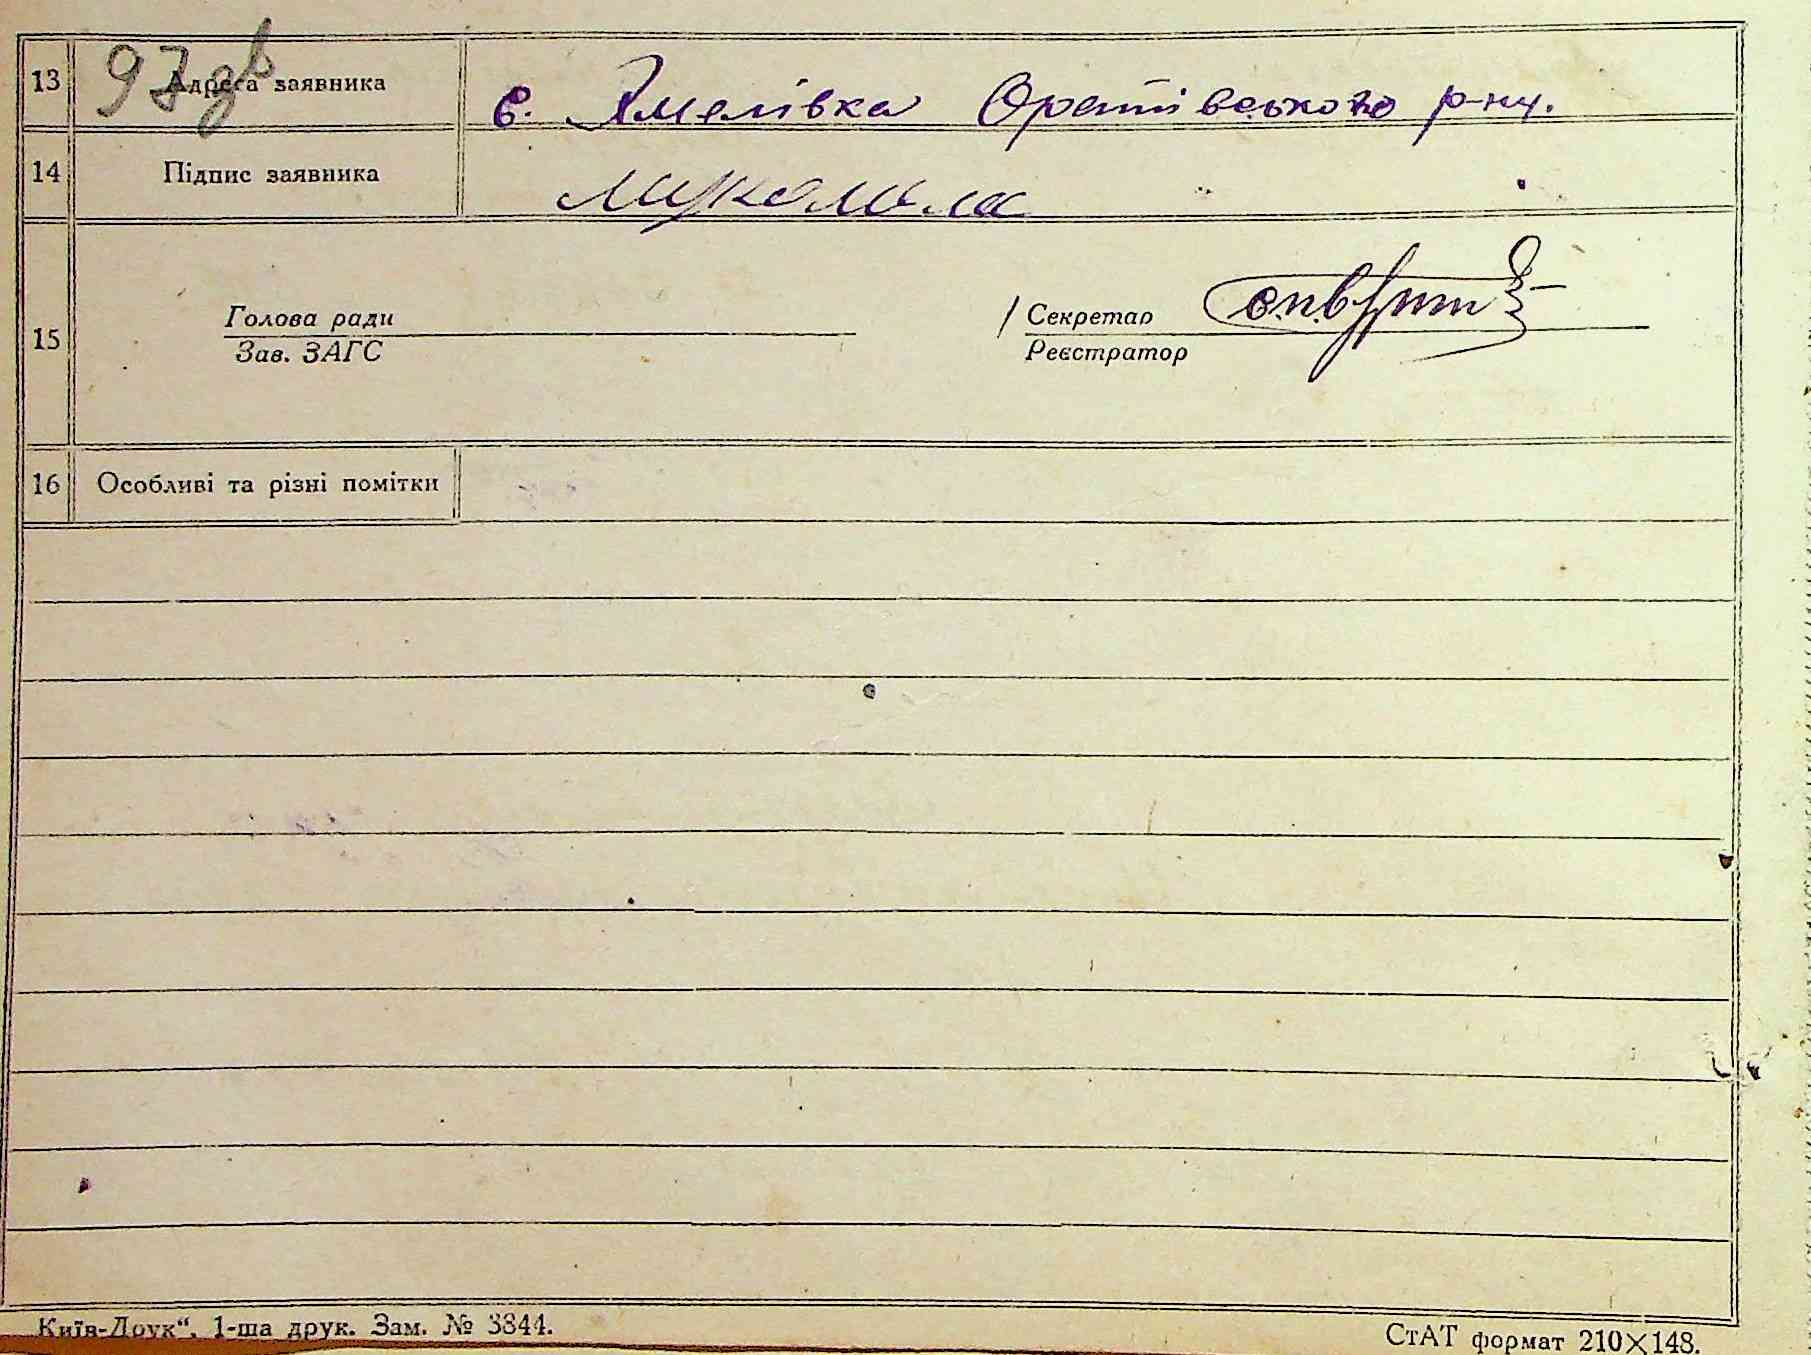 97 зв
13 Адреса заявника с. Якимівка Оратівського р-ну.
14 Підпис заявника
15 Голова ради Секретар
Зав. ЗАГС Реєстратор
16 Особливі та різні помітки
Київ-Друк“, 1-ша друк. Зам. № 3844. СтАТ формат 210×148.